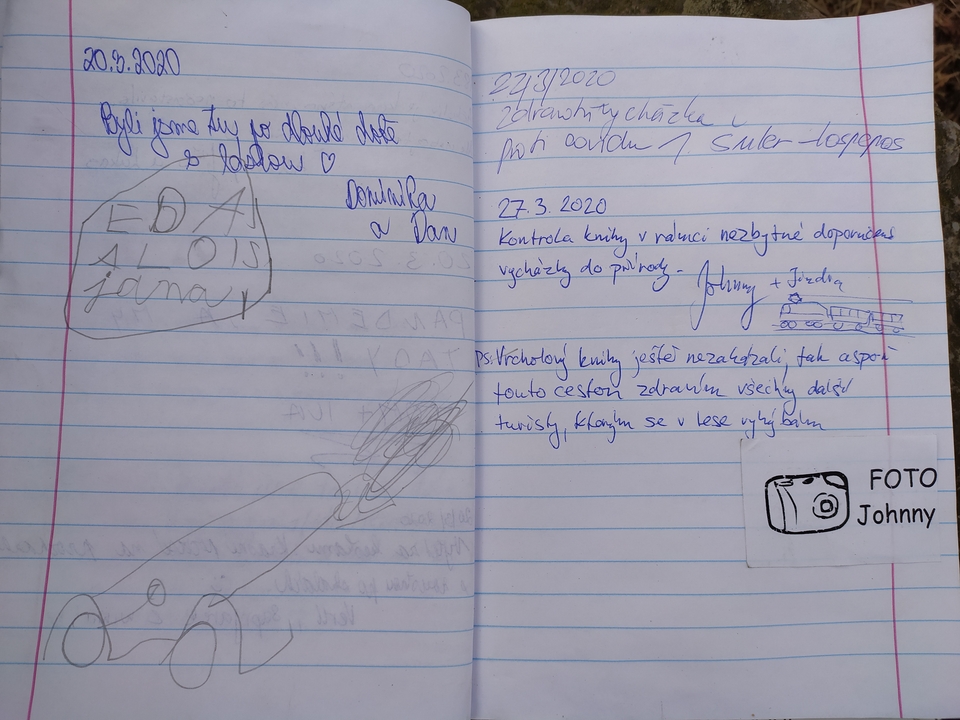 20.3.2020
Byli jsme tu po dlouhé době
s láskou ♡
Dominika
a Dan
EDA
ALOIS
jana
22/3/2020
zdravotní vycházka
proti covidu
27.3.2020
Kontrola knihy v rámci nezbytné doporučené
vycházky do přírody.
Johnny + Jindra
PS: Vrcholový knihy ještě nezakázali, tak aspoň
touto cestou zdravím všechny další
turisty, kterým se v lese vyhýbám
FOTO
Johnny